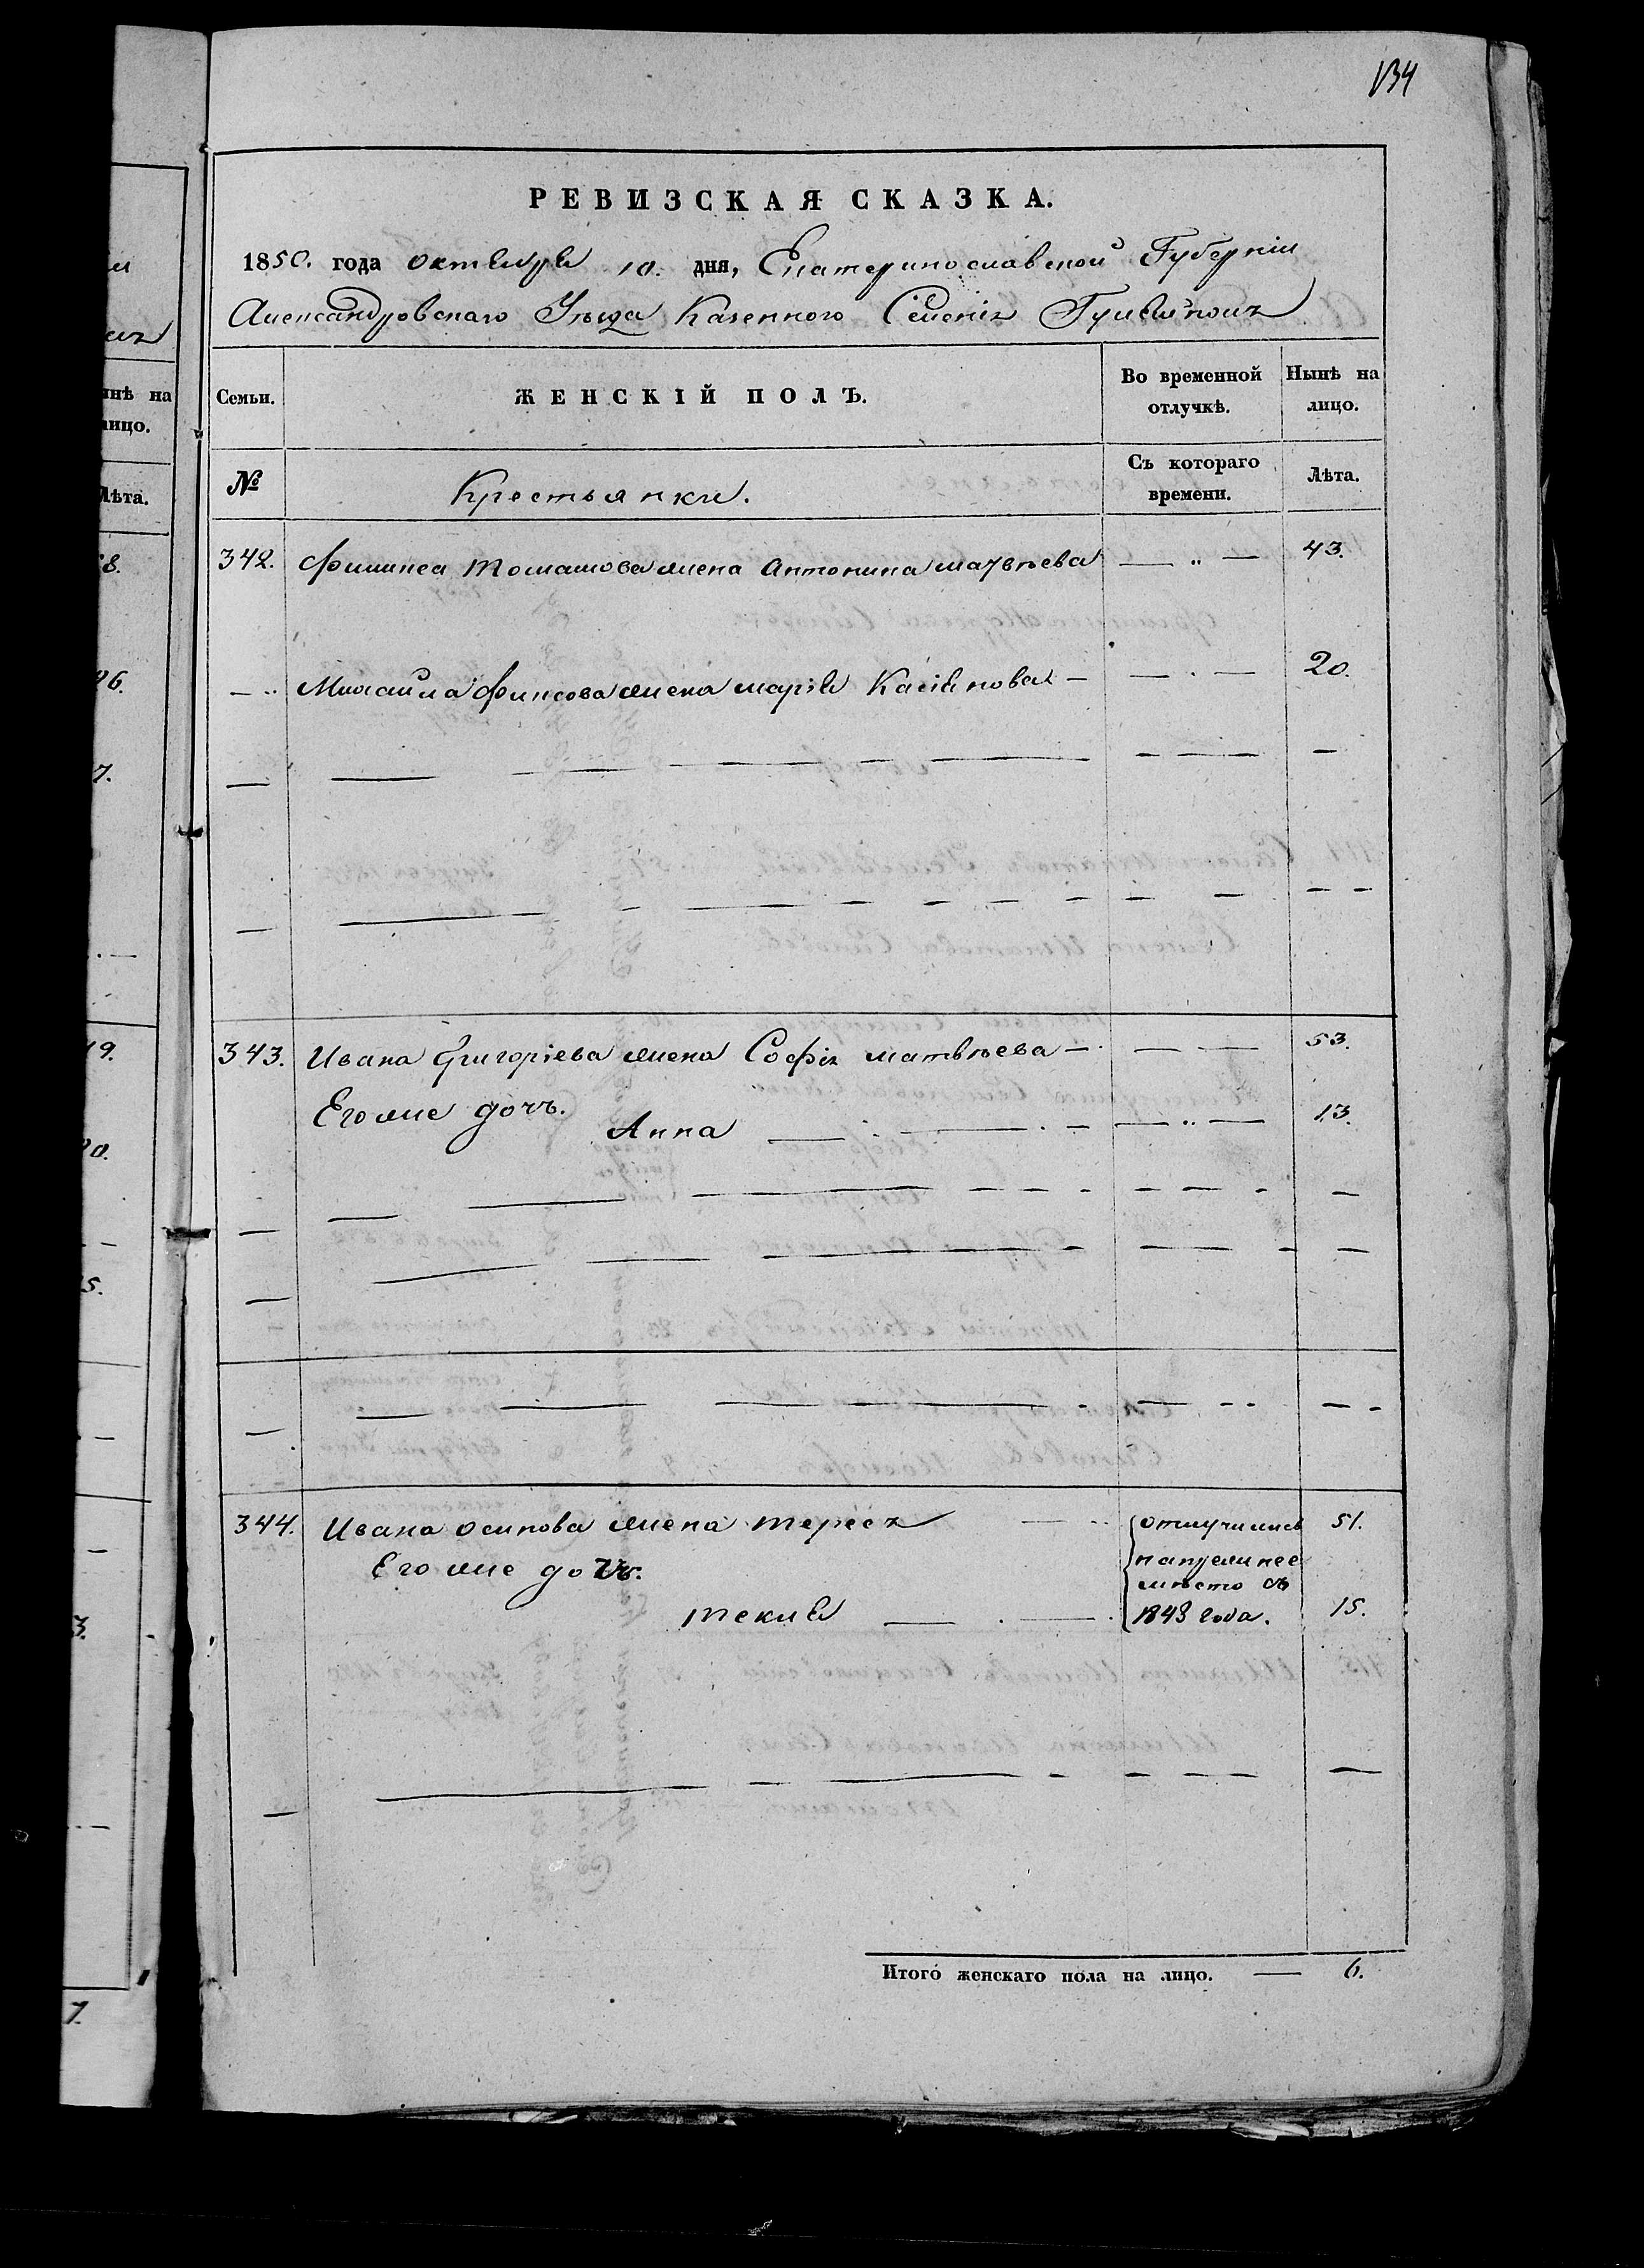 134
РЕВИЗСКАЯ СКАЗКА.
1850. года октября 10. дня, Екатеринославской Губерніи
Александровскаго Уѣзда Казенного Селенія Гуляйполя
Семьи.
ЖЕНСКІЙ ПОЛЪ.
Во временной отлучкѣ.
Нынѣ на лицо.
№
Крестьянки.
Съ котораго времени.
Лѣта.
342. Филипа Томашова жена Антонина матвѣева — „ — 43.
— „ Михайла Филипова жена марія Касіянова — — . — 20.
343. Ивана Григоріева жена Софія матвѣева — — . — 53.
Его же дочь.
Анна — . — . — — „ — 13.
344. Ивана осипова жена тереся — отлучились 51.
Его же дочь. на прежнее
мѣсто съ
текля — . — . 1843 года. 15.
Итого женскаго пола на лицо. — 6.
ынѣ на
лицо.
Лѣта.